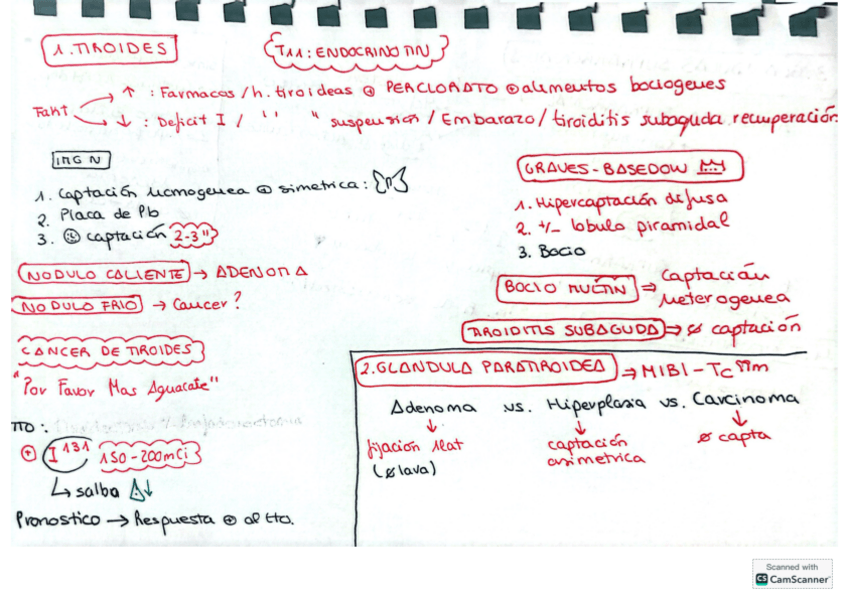 1. TIROIDES
T11: ENDOCRINO MN
FaHt
↑ : Farmacos / h. tiroideas ⊕ PERCLORATO ⊕ alimentos bociogenes
↓ : Deficit I / '' " suspension / Embarazo / tiroiditis subaguda recuperación
IMG N
1. Captación homogenea ⊕ simetrica:
2. Placa de Pb
3. captación 2-3"
NODULO CALIENTE → ADENOMA
NODULO FRIO → Cancer?
CANCER DE TIROIDES
"Por Favor Mas Aguacate"
TTO:
⊕ I 131 150-200mCi
↳ salba ↓
Pronostico → Respuesta ⊕ al tto.
GRAVES-BASEDOW
1. Hipercaptación difusa
2. +/- lobulo piramidal
3. Bocio
BOCIO MULTIN ⇒ Captación heterogenea
TIROIDITIS SUBAGUDA ⇒ ø captación
2. GLANDULA PARATIROIDEA → MIBI-Tc 99m
Adenoma vs. Hiperplasia vs. Carcinoma
↓ ↓ ↓
fijación 1lat captación ø capta
(ø lava) asimetrica
Scanned with
CS CamScanner